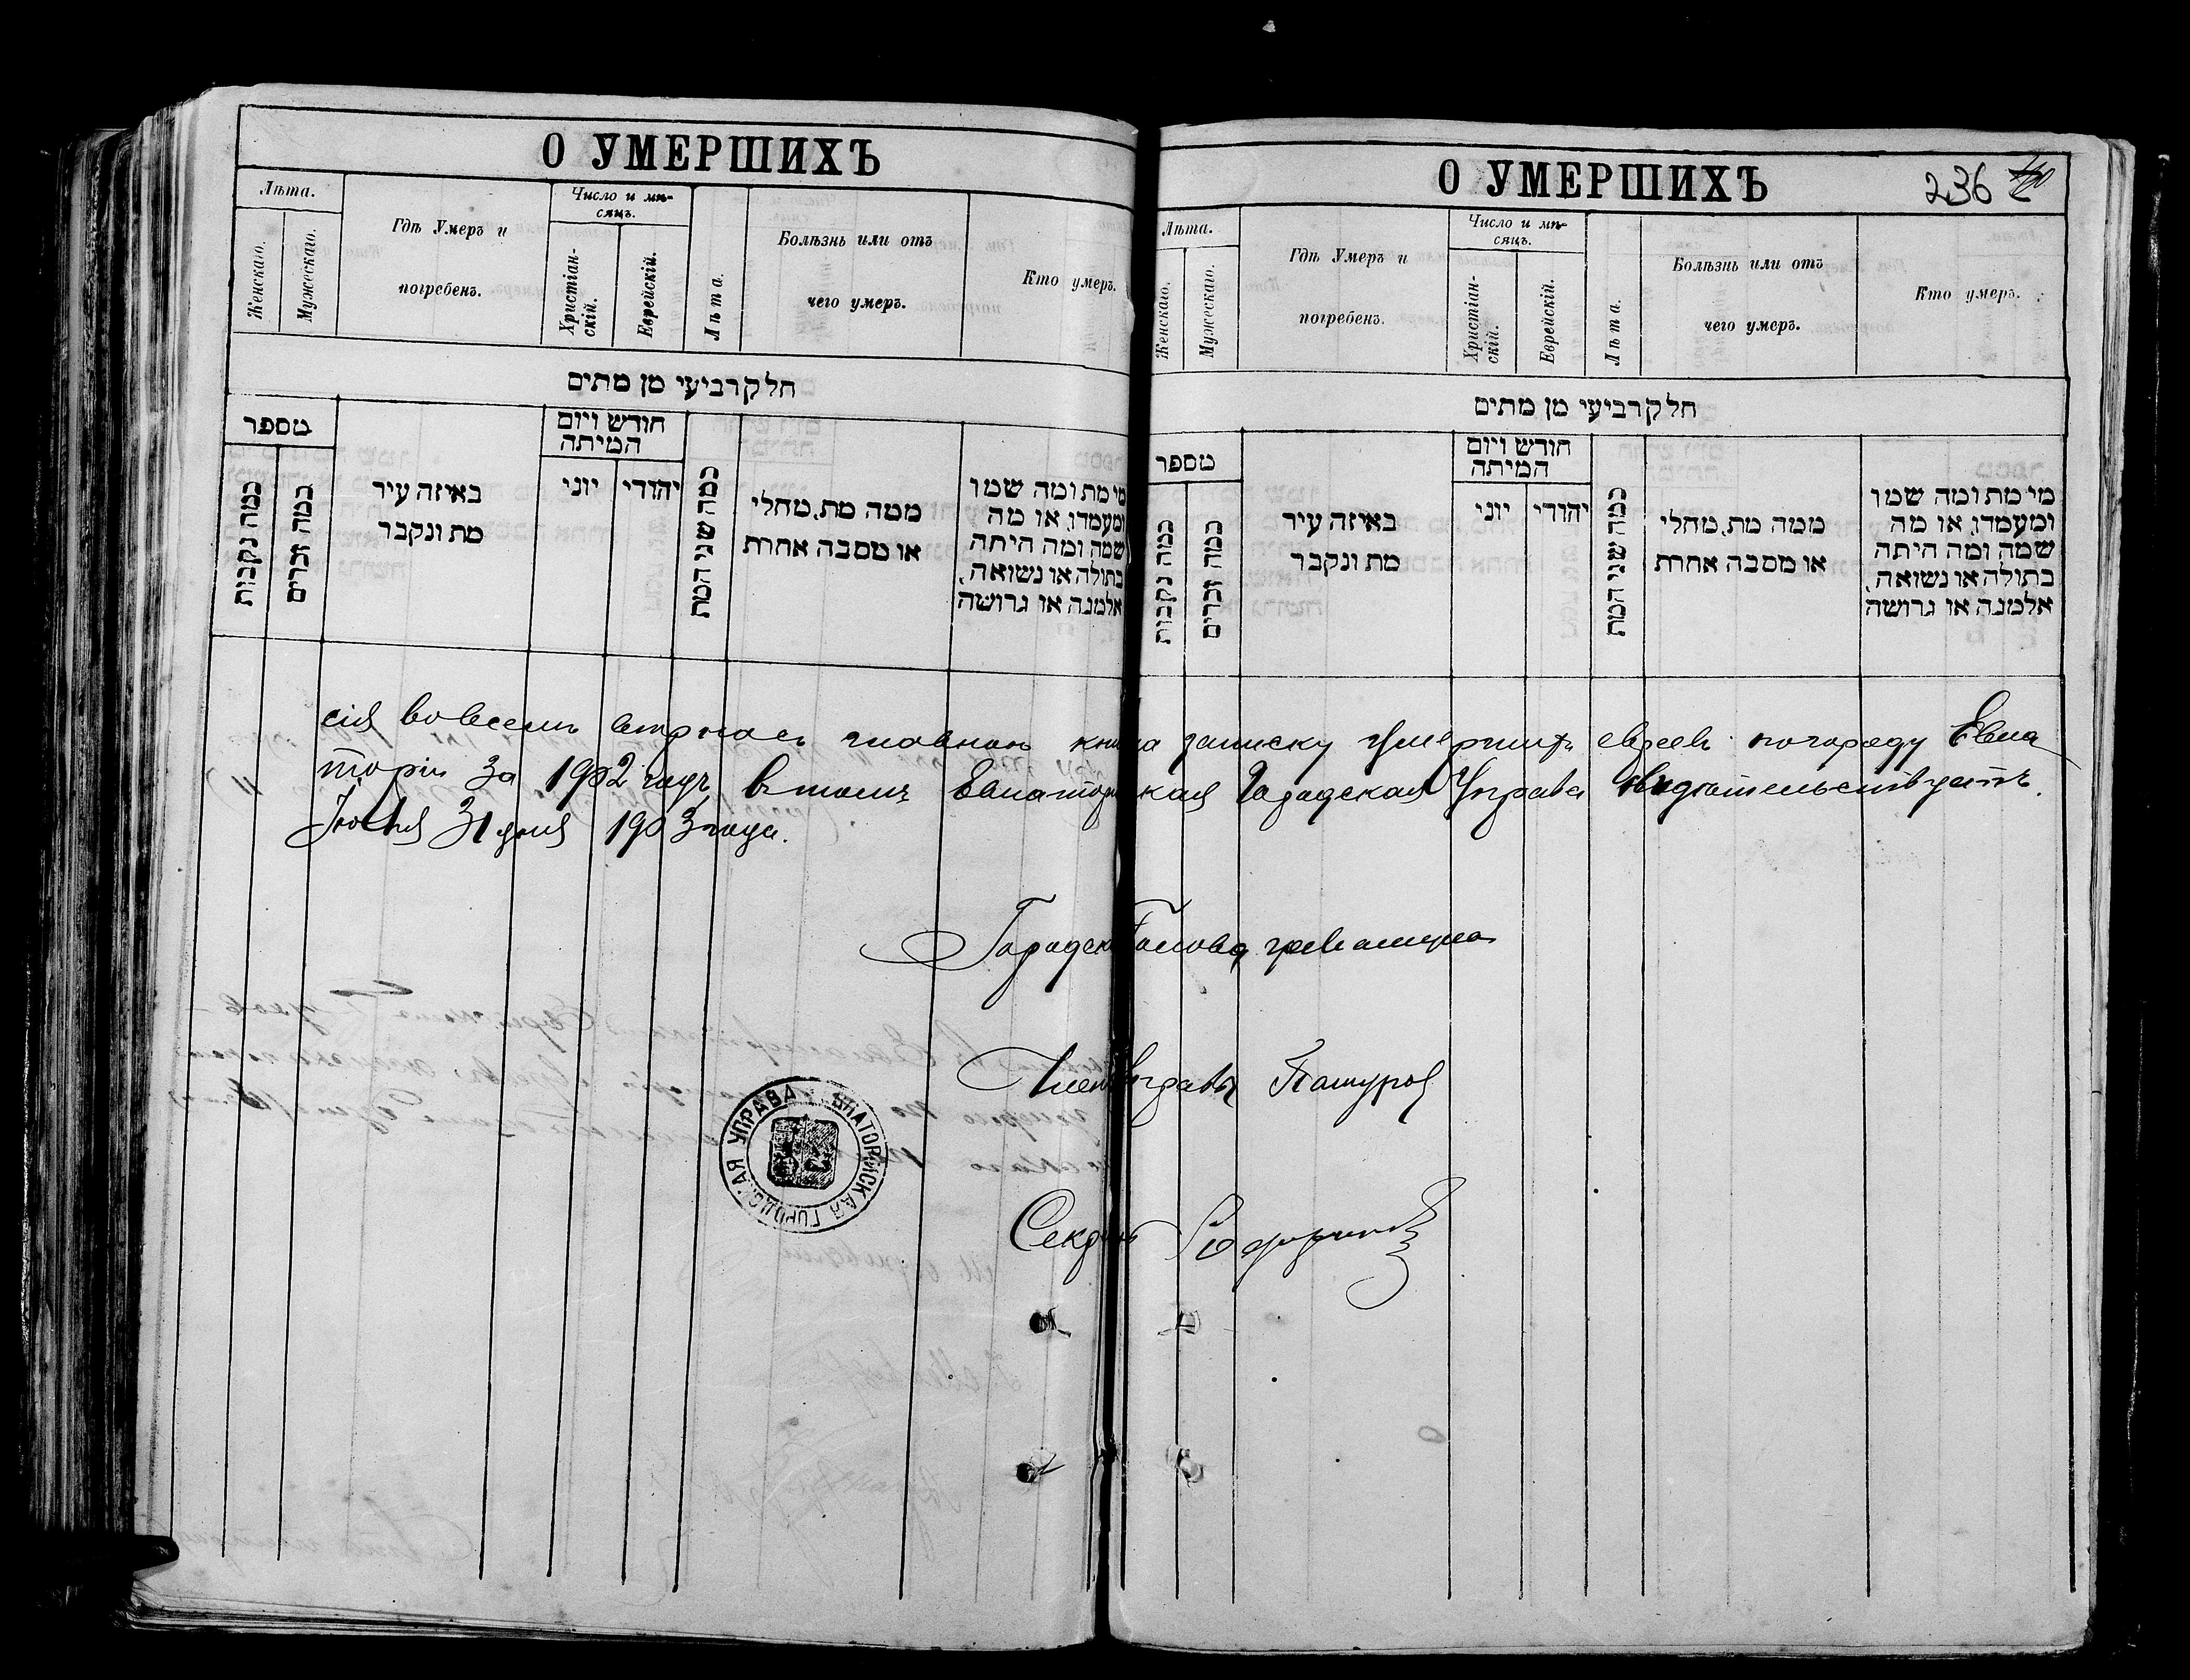 О УМЕРШИХЪ
Лѣта.
Женскаго.
Мужескаго.
Гдѣ Умеръ и
погребенъ.
Число и мѣ-
сяцъ.
Христіан-
скій.
Еврейскій.
Лѣта.
Болѣзнь или отъ
чего умеръ.
Кто умеръ.
חלק רביעי מן מתים
מספר
כמה נקבות
כמה זכרים
באיזה עיר
מת ונקבר
חודש ויום
המיתה
יוני
יהודי
כמה שני המת
ממה מת, מחלי
או מסבה אחרת
מי מת ומה שמו
ומעמדו, או מה
שמה ומה היתה
בתולה או נשואה,
אלמנה או גרושה
О УМЕРШИХЪ
236
Лѣта.
Женскаго.
Мужескаго.
Гдѣ Умеръ и
погребенъ.
Число и мѣ-
сяцъ.
Христіан-
скій.
Еврейскій.
Лѣта.
Болѣзнь или отъ
чего умеръ.
Кто умеръ.
חלק רביעי מן מתים
מספר
כמה נקבות
כמה זכרים
באיזה עיר
מת ונקבר
חודש ויום
המיתה
יוני
יהודי
כמה שני המת
ממה מת, מחלי
או מסבה אחרת
מי מת ומה שמו
ומעמדו, או מה
שמה ומה היתה
בתולה או נשואה,
אלמנה או גרושה
сія во всемъ книга записку умершихъ евреевъ по городу Евпа
торіи за 1902 годъ в томъ Евпаторійская Городская Управа свидѣтельствуетъ.
31 дня 1903 года.
Городск Голова
Член Управы
Секр
ЕВПАТОРІЙСКАЯ ГОРОДСКАЯ УПРАВА